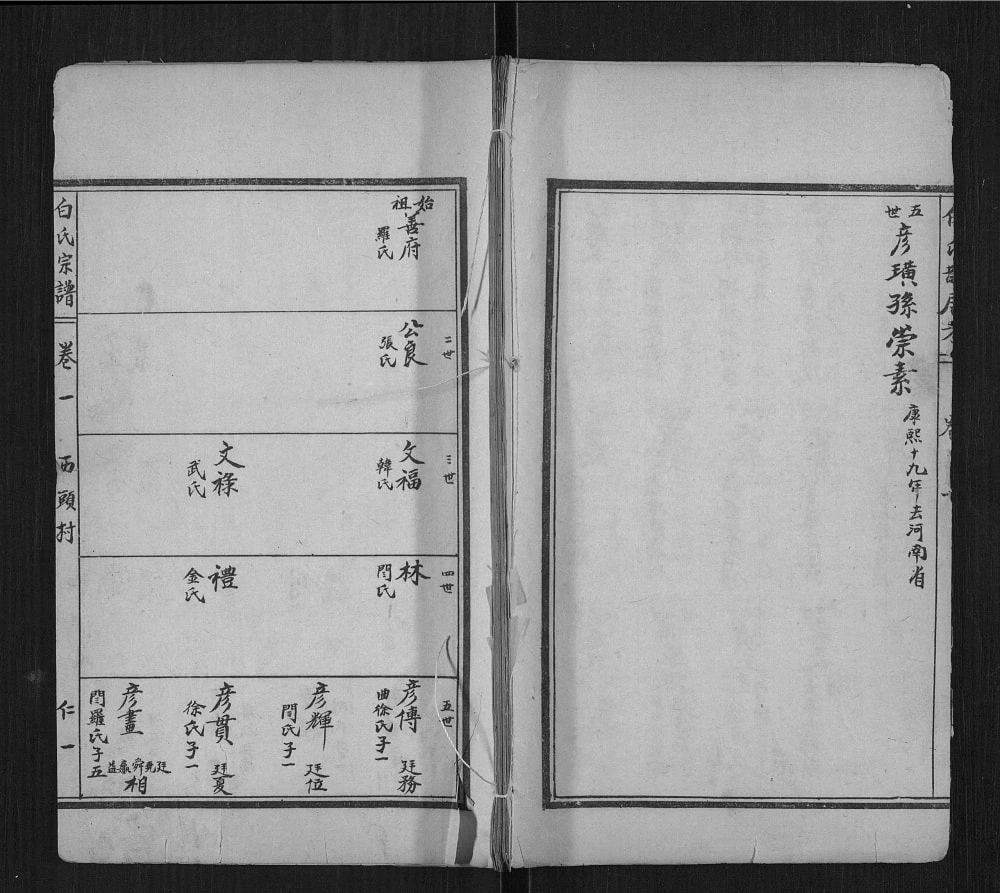 五世
彦璜孫崇素
康熙十九年去河南省
始祖
善府
羅氏
二世
公良
張氏
三世
文福
韓氏
文祿
武氏
四世
林
閆氏
禮
金氏
五世
彦傳
曲徐氏子一
廷務
彦輝
閆氏子一
廷位
彦貫
徐氏子一
廷夏
彦畫
閆羅氏子五
廷堯舜
益
相
白氏宗譜
卷一
西頭村
仁一